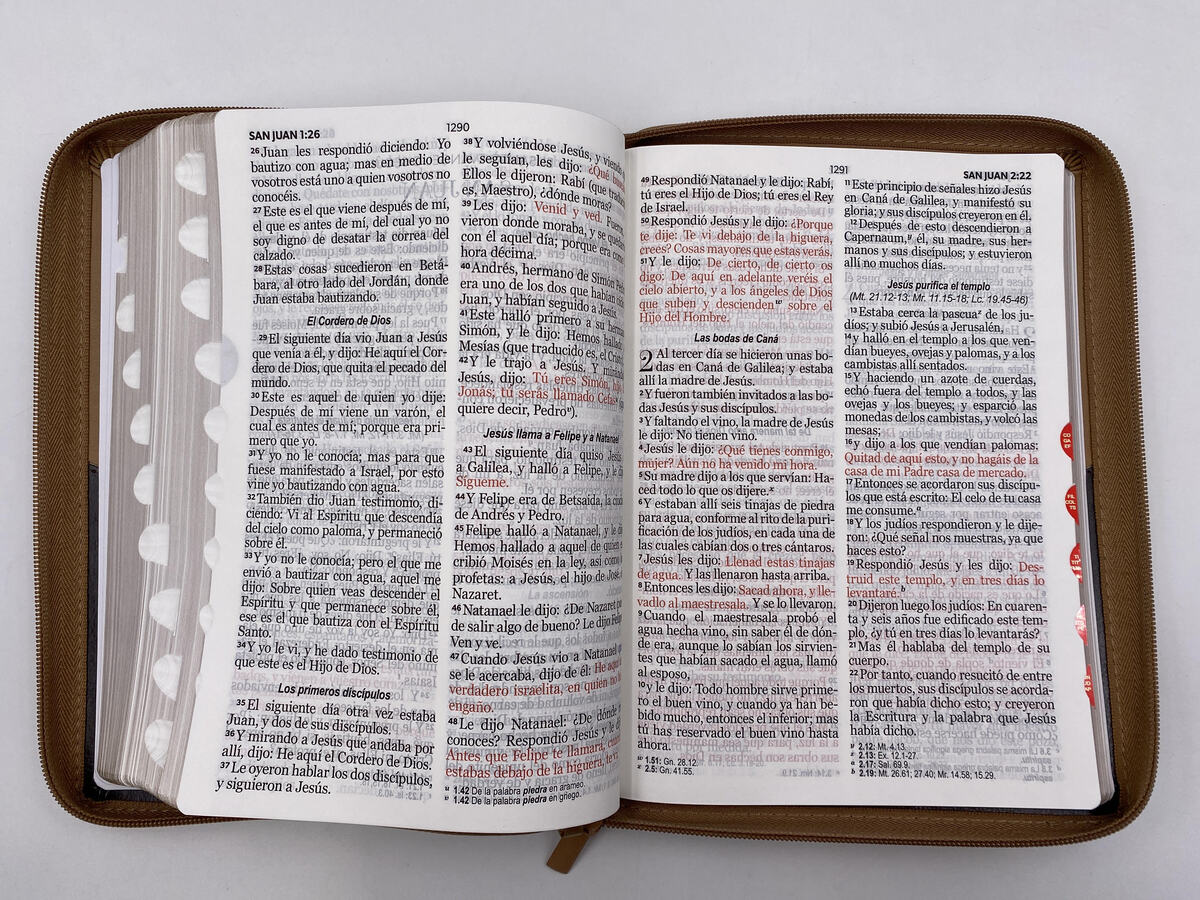 SAN JUAN 1:26
1290
26Juan les respondió diciendo: Yo
bautizo con agua; mas en medio de
vosotros está uno a quien vosotros no
conocéis.
27Este es el que viene después de mí,
el que es antes de mí, del cual yo no
soy digno de desatar la correa del
calzado.
28Estas cosas sucedieron en Betá-
bara, al otro lado del Jordán, donde
Juan estaba bautizando.
El Cordero de Dios
29El siguiente día vio Juan a Jesús
que venía a él, y dijo: He aquí el Cor-
dero de Dios, que quita el pecado del
mundo.
30Este es aquel de quien yo dije:
Después de mí viene un varón, el
cual es antes de mí; porque era pri-
mero que yo.
31Y yo no le conocía; mas para que
fuese manifestado a Israel, por esto
vine yo bautizando con agua.
32También dio Juan testimonio, di-
ciendo: Vi al Espíritu que descendía
del cielo como paloma, y permaneció
sobre él.
33Y yo no le conocía; pero el que me
envió a bautizar con agua, aquel me
dijo: Sobre quien veas descender el
Espíritu y que permanece sobre él,
ese es el que bautiza con el Espíritu
Santo.
34Y yo le vi, y he dado testimonio de
que este es el Hijo de Dios.
Los primeros discípulos
35El siguiente día otra vez estaba
Juan, y dos de sus discípulos.
36Y mirando a Jesús que andaba por
allí, dijo: He aquí el Cordero de Dios.
37Le oyeron hablar los dos discípulos,
y siguieron a Jesús.
38Y volviéndose Jesús, y viendo
le seguían, les dijo: ¿Qué
Ellos le dijeron: Rabí (que
es, Maestro), ¿dónde moras?
39Les dijo: Venid y ved. Fueron,
vieron donde moraba, y se quedaron
con él aquel día; porque era como
hora décima.
40Andrés, hermano de Simón Pedro
era uno de los dos que habían
Juan, y habían seguido a Jesús.
41Este halló primero a su hermano
Simón, y le dijo: Hemos hallado
Mesías (que traducido es, el Cristo
42Y le trajo a Jesús. Y mirándole
Jesús, dijo: Tú eres Simón, hijo
Jonás; tú serás llamado Cefas
quiere decir, Pedro).
Jesús llama a Felipe y a Natanael
43El siguiente día quiso Jesús
a Galilea, y halló a Felipe, y le
Sígueme.
44Y Felipe era de Betsaida, la ciudad
de Andrés y Pedro.
45Felipe halló a Natanael, y le
Hemos hallado a aquel de quien
cribió Moisés en la ley, así como
profetas: a Jesús, el hijo de José,
Nazaret.
46Natanael le dijo: ¿De Nazaret
de salir algo de bueno? Le dijo Felipe
Ven y ve.
47Cuando Jesús vio a Natanael
se le acercaba, dijo de él: He aquí
verdadero israelita, en quien no
engaño.
48Le dijo Natanael: ¿De dónde
conoces? Respondió Jesús y le
Antes que Felipe te llamara,
estabas debajo de la higuera, te
1.42 De la palabra piedra en arameo.
1.42 De la palabra piedra en griego.
1291
SAN JUAN 2:22
49Respondió Natanael y le dijo: Rabí,
tú eres el Hijo de Dios; tú eres el Rey
de Israel.
50Respondió Jesús y le dijo: ¿Porque
te dije: Te vi debajo de la higuera,
crees? Cosas mayores que estas verás.
51Y le dijo: De cierto, de cierto os
digo: De aquí en adelante veréis el
cielo abierto, y a los ángeles de Dios
que suben y descienden sobre el
Hijo del Hombre.
Las bodas de Caná
2 Al tercer día se hicieron unas bo-
das en Caná de Galilea; y estaba
allí la madre de Jesús.
2Y fueron también invitados a las bo-
das Jesús y sus discípulos.
3Y faltando el vino, la madre de Jesús
le dijo: No tienen vino.
4Jesús le dijo: ¿Qué tienes conmigo,
mujer? Aún no ha venido mi hora.
5Su madre dijo a los que servían: Ha-
ced todo lo que os dijere.x
6Y estaban allí seis tinajas de piedra
para agua, conforme al rito de la puri-
ficación de los judíos, en cada una de
las cuales cabían dos o tres cántaros.
7Jesús les dijo: Llenad estas tinajas
de agua. Y las llenaron hasta arriba.
8Entonces les dijo: Sacad ahora, y lle-
vadlo al maestresala. Y se lo llevaron.
9Cuando el maestresala probó el
agua hecha vino, sin saber él de dón-
de era, aunque lo sabían los sirvien-
tes que habían sacado el agua, llamó
al esposo,
10y le dijo: Todo hombre sirve prime-
ro el buen vino, y cuando ya han be-
bido mucho, entonces el inferior; mas
tú has reservado el buen vino hasta
ahora.
1.51: Gn. 28.12.
2.5: Gn. 41.55.
11Este principio de señales hizo Jesús
en Caná de Galilea, y manifestó su
gloria; y sus discípulos creyeron en él.
12Después de esto descendieron a
Capernaum,y él, su madre, sus her-
manos y sus discípulos; y estuvieron
allí no muchos días.
Jesús purifica el templo
(Mt. 21.12-13; Mr. 11.15-18; Lc. 19.45-46)
13Estaba cerca la pascuaz de los ju-
díos; y subió Jesús a Jerusalén,
14y halló en el templo a los que ven-
dían bueyes, ovejas y palomas, y a los
cambistas allí sentados.
15Y haciendo un azote de cuerdas,
echó fuera del templo a todos, y las
ovejas y los bueyes; y esparció las
monedas de los cambistas, y volcó las
mesas;
16y dijo a los que vendían palomas:
Quitad de aquí esto, y no hagáis de la
casa de mi Padre casa de mercado.
17Entonces se acordaron sus discípu-
los que está escrito: El celo de tu casa
me consume.a
18Y los judíos respondieron y le dije-
ron: ¿Qué señal nos muestras, ya que
haces esto?
19Respondió Jesús y les dijo: Des-
truid este templo, y en tres días lo
levantaré.b
20Dijeron luego los judíos: En cuaren-
ta y seis años fue edificado este tem-
plo, ¿y tú en tres días lo levantarás?
21Mas él hablaba del templo de su
cuerpo.
22Por tanto, cuando resucitó de entre
los muertos, sus discípulos se acorda-
ron que había dicho esto; y creyeron
la Escritura y la palabra que Jesús
había dicho.
y 2.12: Mt. 4.13.
z 2.13: Ex. 12.1-27.
a 2.17: Sal. 69.9.
b 2.19: Mt. 26.61; 27.40; Mr. 14.58; 15.29.